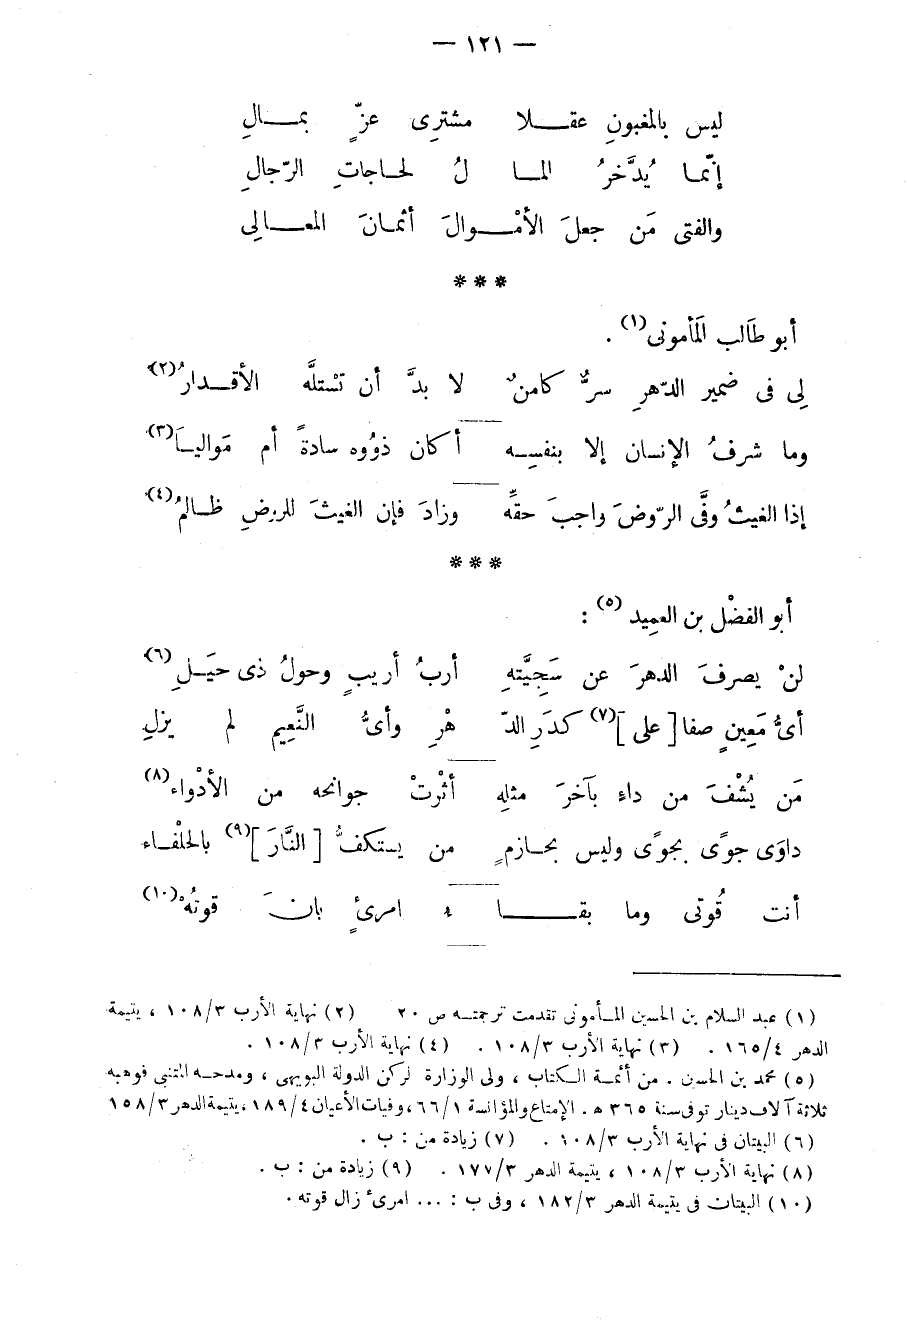 — ١٢١ —
ليس بالمغبونِ عقـلا مشترِى عزٍّ بمـالِ
إنّما يُدَّخرُ المـا لُ لحاجاتِ الرّجالِ
والفتى مَن جعلَ الأمْـوالَ أثمانَ المعـالِى
***
أبو طالب المَأمونى(١) .
لِى فى ضمير الدّهرِ سرٌّ كامنٌ لا بدَّ أن تسْتلَّه الأقـدارُ(٢)
وما شرفُ الإنسان إلا بنفسِـه أكان ذوُوه سادةً أم مَواليـاَ(٣)
إذا الغيثُ وفَّى الرّوضَ واجبَ حقِّه وزادَ فإن الغيثَ للروضِ ظالمُ(٤)
***
أبو الفضْل بن العمِيد(٥) :
لنْ يصرفَ الدهرَ عن سَجِيَّتهِ أربُ أريبٍ وحولُ ذى حيَـلِ(٦)
أىُّ مَعِينٍ صفا [ على ](٧) كدَرِ الدّ هْرِ وأىُّ النَّعِيم لم يزلِ
مَن يُشْفَ من داء بآخرَ مثلِه أثْرتْ جوانحه من الأدْواء(٨)
داوَى جوًى بجوًى وليس بحازمٍ من يستكفُّ [ النَّارَ ](٩) بالحلْفـاء
أنت قُوتى وما بقـا ء امرئٍ بانَ قوتُهْ(١٠)
(١) عبد السلام بن الحسين المـأمونى تقدمت ترجمته ص ٢٠ (٢) نهاية الأرب ١٠٨/٣ ، يتيمة
الدهر ١٦٥/٤ . (٣) نهاية الأرب ١٠٨/٣ . (٤) نهاية الأرب ١٠٨/٣ .
(٥) محمد بن الحسن . من أئمـة الكتاب ، ولى الوزارة لركن الدولة البويهى ، ومدحـه المتنبى فوهبه
ثلاثة آلاف دينار توفى سنة ٣٦٥ ه . الإمتاع والمؤانسة ٦٦/١ ، وفيات الأعيان ١٨٩/٤ ، يتيمة الدهر ١٥٨/٣
(٦) البيتان فى نهاية الأرب ١٠٨/٣ . (٧) زيادة من : ب .
(٨) نهاية الأرب ١٠٨/٣ ، يتيمة الدهر ١٧٧/٣ . (٩) زيادة من : ب .
(١٠) البيتان فى يتيمة الدهر ١٨٢/٣ ، وفى ب : ... امرئ زال قوته .